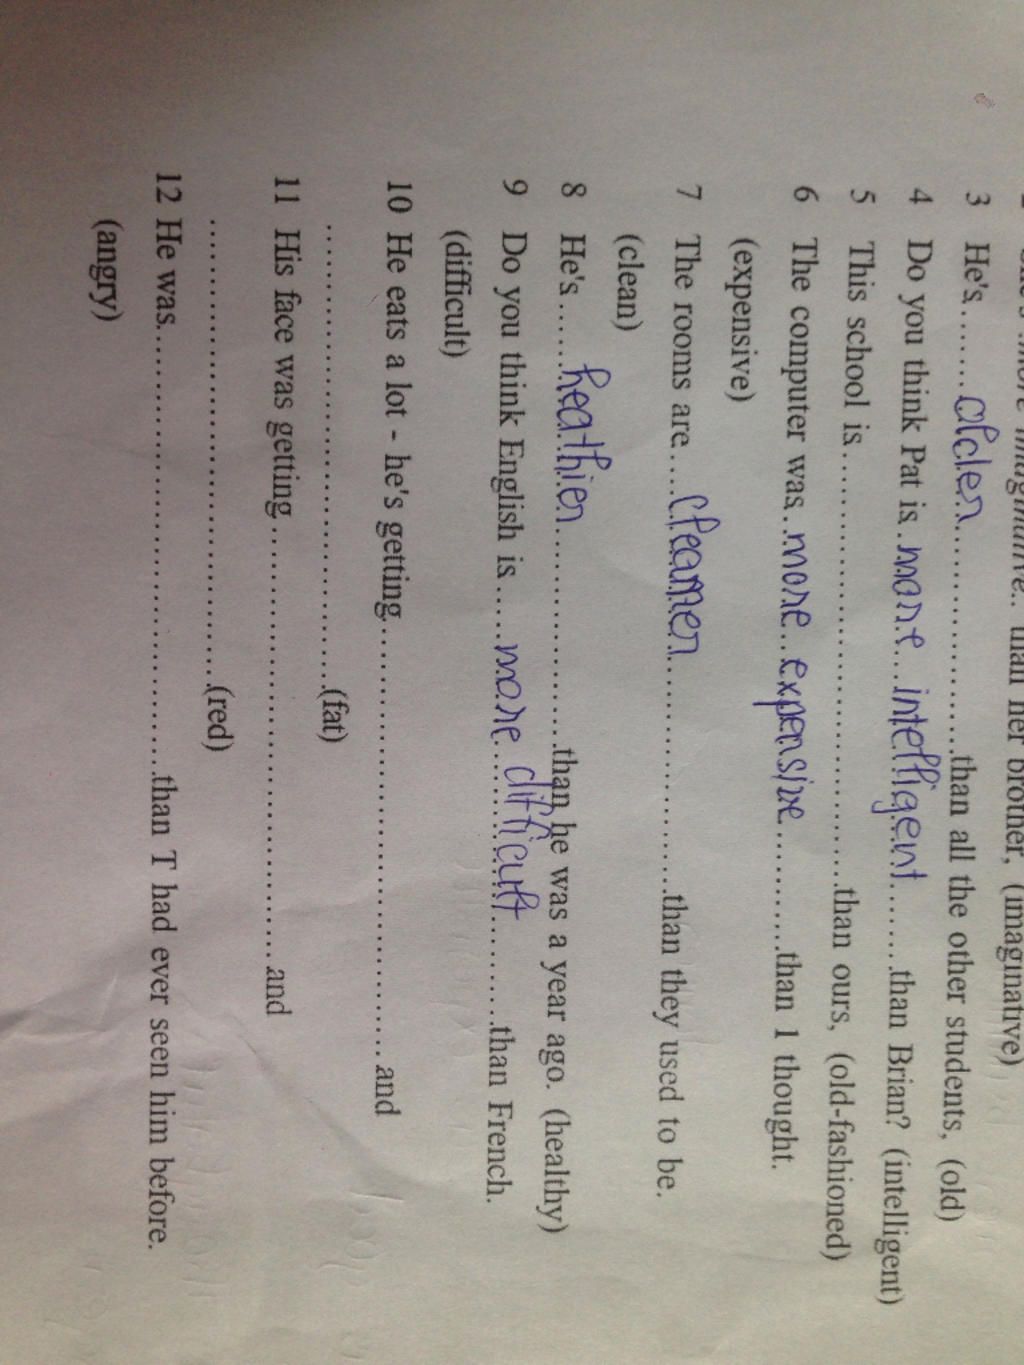 more imaginative.. than her brother, (imaginative)
3 He's......older......................than all the other students, (old)
4 Do you think Pat is..more...intelligent......than Brian? (intelligent)
5 This school is........................................than ours, (old-fashioned)
6 The computer was..more...expensive...........than 1 thought.
(expensive)
7 The rooms are....cleaner.....................than they used to be.
(clean)
8 He's......heathier.....................than he was a year ago. (healthy)
9 Do you think English is.....more difficult.........than French.
(difficult)
10 He eats a lot - he's getting........................................and
........................................(fat)
11 His face was getting........................................and
........................................(red)
12 He was........................................than T had ever seen him before.
(angry)